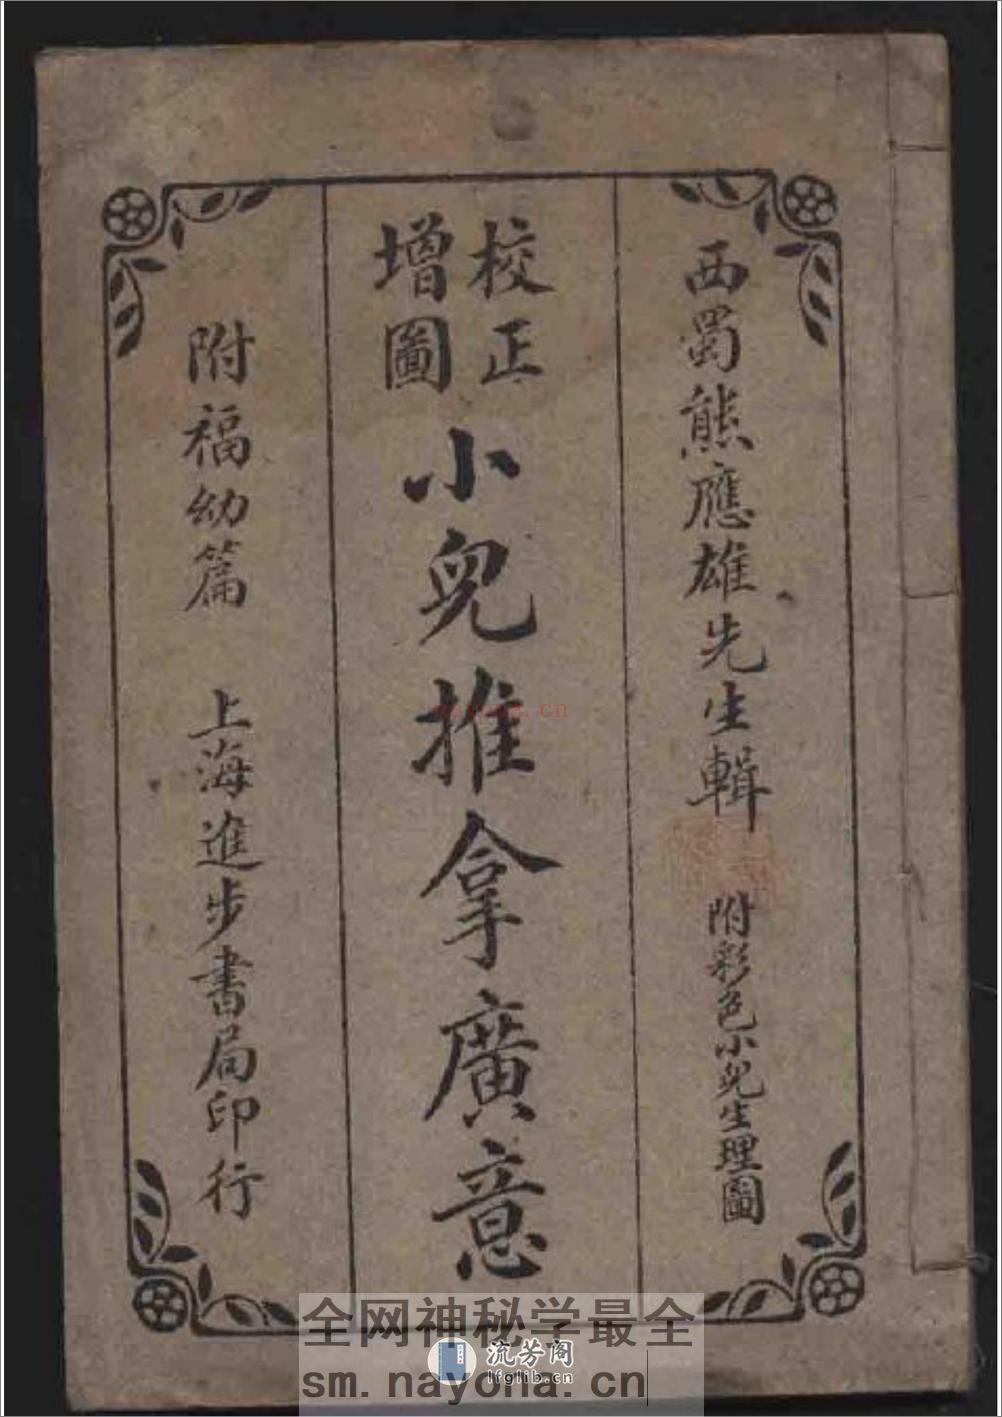 西蜀熊應雄先生輯 附彩色小兒生理圖
校正
增圖
小兒推拿廣意
附福幼篇 上海進步書局印行
nayona.cn
全网神秘学最全
流芳阁
lfglib.cn
sm.nayona.cn